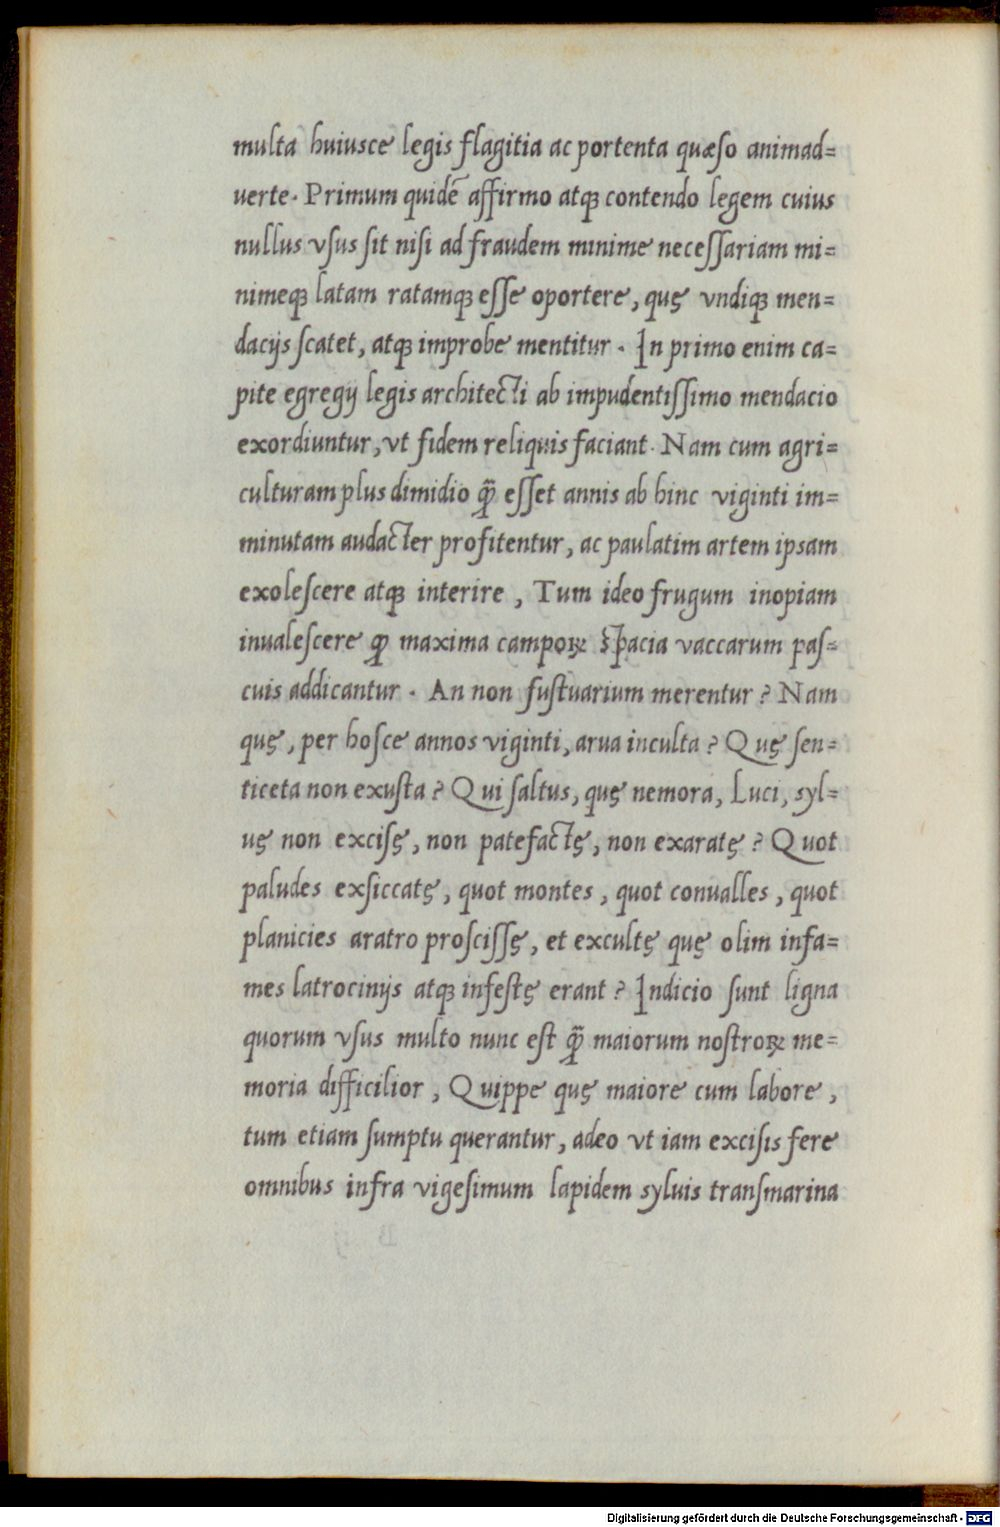 multa huiusce legis flagitia ac portenta quæso animad=
verte. Primum quidē affirmo atqꝫ contendo legem cuius
nullus vſus ſit niſi ad fraudem minime neceſſariam mi=
nimeqꝫ latam ratamqꝫ eſſe oportere, quę vndiqꝫ men=
dacijs ſcatet, atqꝫ improbe mentitur. In primo enim ca=
pite egregij legis architecti ab impudentiſſimo mendacio
exordiuntur, vt fidem reliquis faciant. Nam cum agri=
culturam plus dimidio qꝫ̄ eſſet annis ab hinc viginti im=
minutam audacter profitentur, ac paulatim artem ipsam
exoleſcere atqꝫ interire, Tum ideo frugum inopiam
inualeſcere ꝙ maxima campoꝝ ſpacia vaccarum paſ=
cuis addicantur. An non fuſtuarium merentur? Nam
quę, per hoſce annos viginti, arua inculta? Quę ſen=
ticeta non exuſta? Qui ſaltus, quę nemora, Luci, syl=
uę non exciſę, non patefactę, non exaratę? Quot
paludes exſiccatę, quot montes, quot conualles, quot
planicies aratro proſciſſę, et excultę quę olim infa=
mes latrocinijs atqꝫ infeſtę erant? Indicio ſunt ligna
quorum vſus multo nunc eſt qꝫ̄ maiorum noſtroꝝ me=
moria difficilior, Quippe quę maiore cum labore,
tum etiam ſumptu querantur, adeo vt iam exciſis fere
omnibus infra vigeſimum lapidem syluis tranſmarina
Digitalisierung gefördert durch die Deutsche Forschungsgemeinschaft - DFG